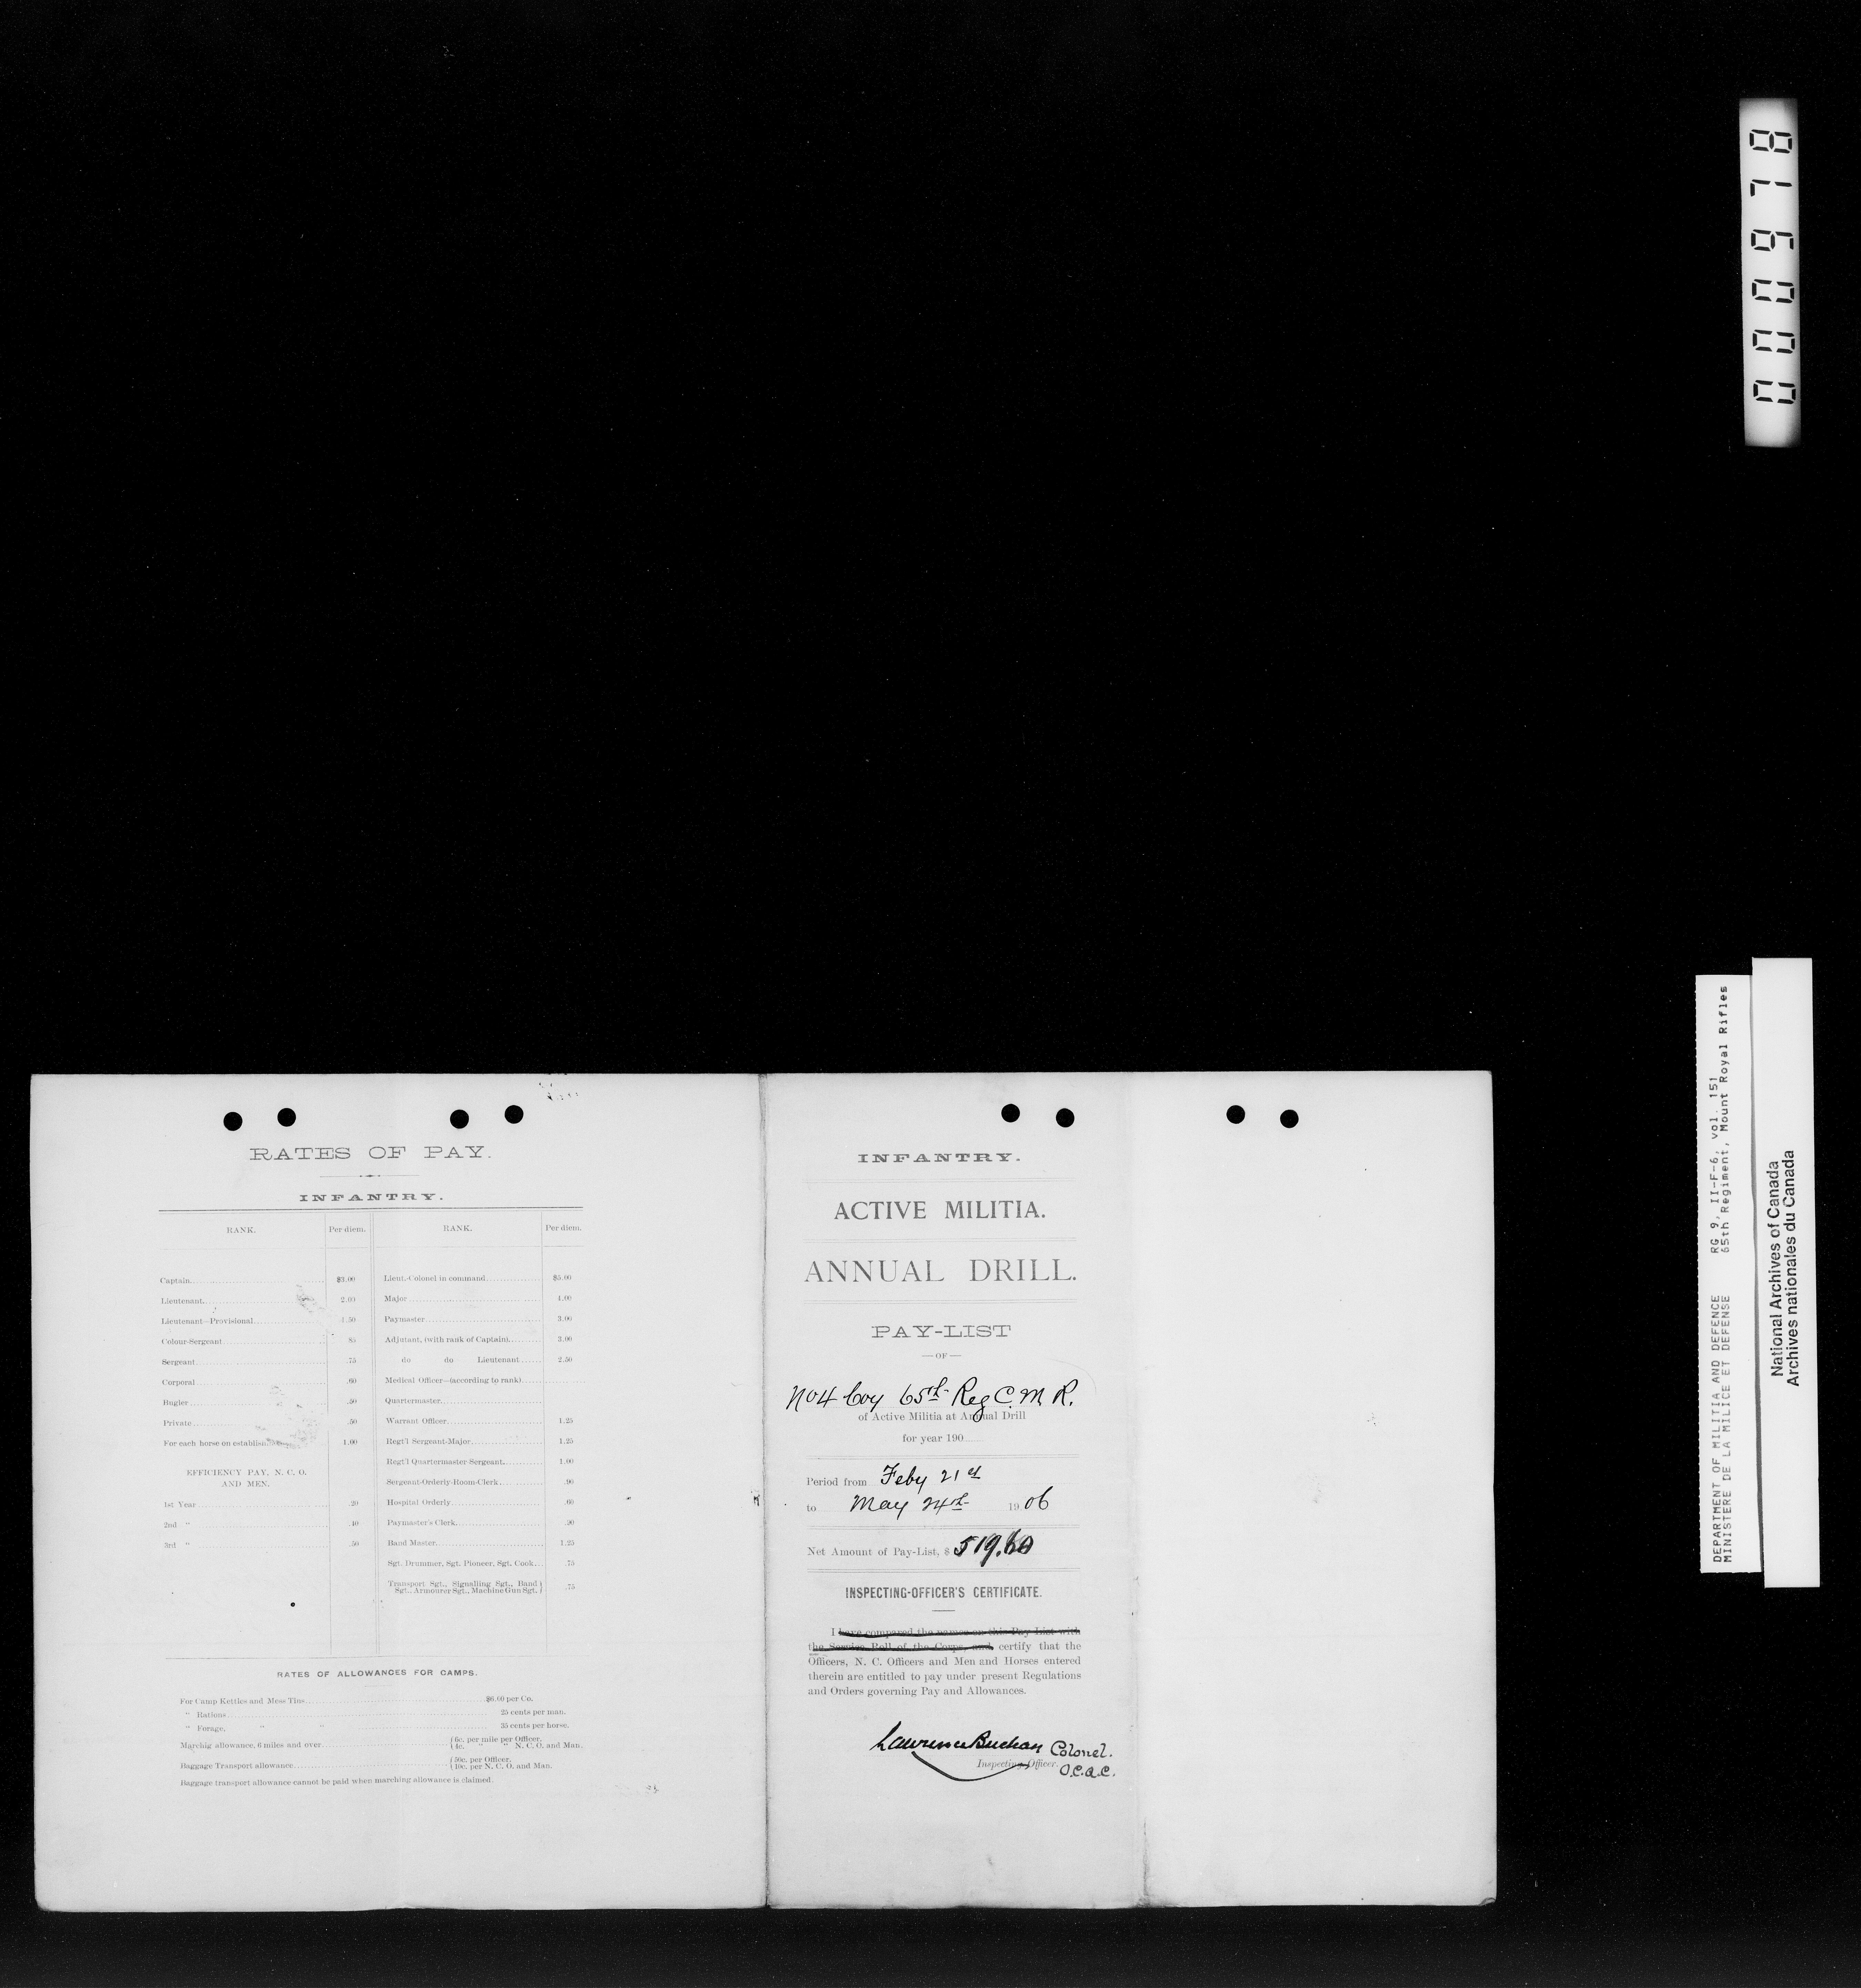 RATES OF PAY.
INFANTRY.
RANK. Per diem. RANK. Per diem.
Captain $3.00 Lieut.-Colonel in command $5.00
Lieutenant 2.00 Major 4.00
Lieutenant—Provisional 1.50 Paymaster 3.00
Colour-Sergeant 85 Adjutant, (with rank of Captain) 3.00
Sergeant .75 do do Lieutenant 2.50
Corporal .60 Medical Officer—(according to rank)
Bugler .50 Quartermaster
Private .50 Warrant Officer 1.25
For each horse on establish 1.00 Regt'l Sergeant-Major 1.25
Regt'l Quartermaster Sergeant 1.00
EFFICIENCY PAY, N. C. O.
AND MEN.
Sergeant-Orderly-Room-Clerk .90
1st Year .20 Hospital Orderly .60
2nd " .40 Paymaster's Clerk .90
3rd " .50 Band Master 1.25
Sgt. Drummer, Sgt. Pioneer, Sgt. Cook .75
Transport Sgt., Signalling Sgt., Band
Sgt., Armourer Sgt., Machine Gun Sgt. .75
RATES OF ALLOWANCES FOR CAMPS.
For Camp Kettles and Mess Tins $6.00 per Co.
" Rations 25 cents per man.
" Forage, " " 35 cents per horse.
Marchig allowance, 6 miles and over { 6c. per mile per Officer.
{ 4c. " " N. C. O. and Man.
Baggage Transport allowance { 50c. per Officer.
{ 10c. per N. C. O. and Man.
Baggage transport allowance cannot be paid when marching allowance is claimed.
INFANTRY.
ACTIVE MILITIA.
ANNUAL DRILL.
PAY-LIST
—OF—
No 4 Coy 65th Reg C. M. R.
of Active Militia at Annual Drill
for year 190
Period from Feby 21st
to May 24th 1906
Net Amount of Pay-List, $ 519.60
INSPECTING-OFFICER'S CERTIFICATE.
I have compared the names on this Pay List with
the Service Roll of the Corps, and certify that the
Officers, N. C. Officers and Men and Horses entered
therein are entitled to pay under present Regulations
and Orders governing Pay and Allowances.
Lawrence Buchan Colonel.
Inspecting Officer. O.C.Q.C.
0000978
DEPARTMENT OF MILITIA AND DEFENCE RG 9, II-F-6, vol. 151
MINISTERE DE LA MILICE ET DEFENSE 65th Regiment, Mount Royal Rifles
National Archives of Canada
Archives nationales du Canada